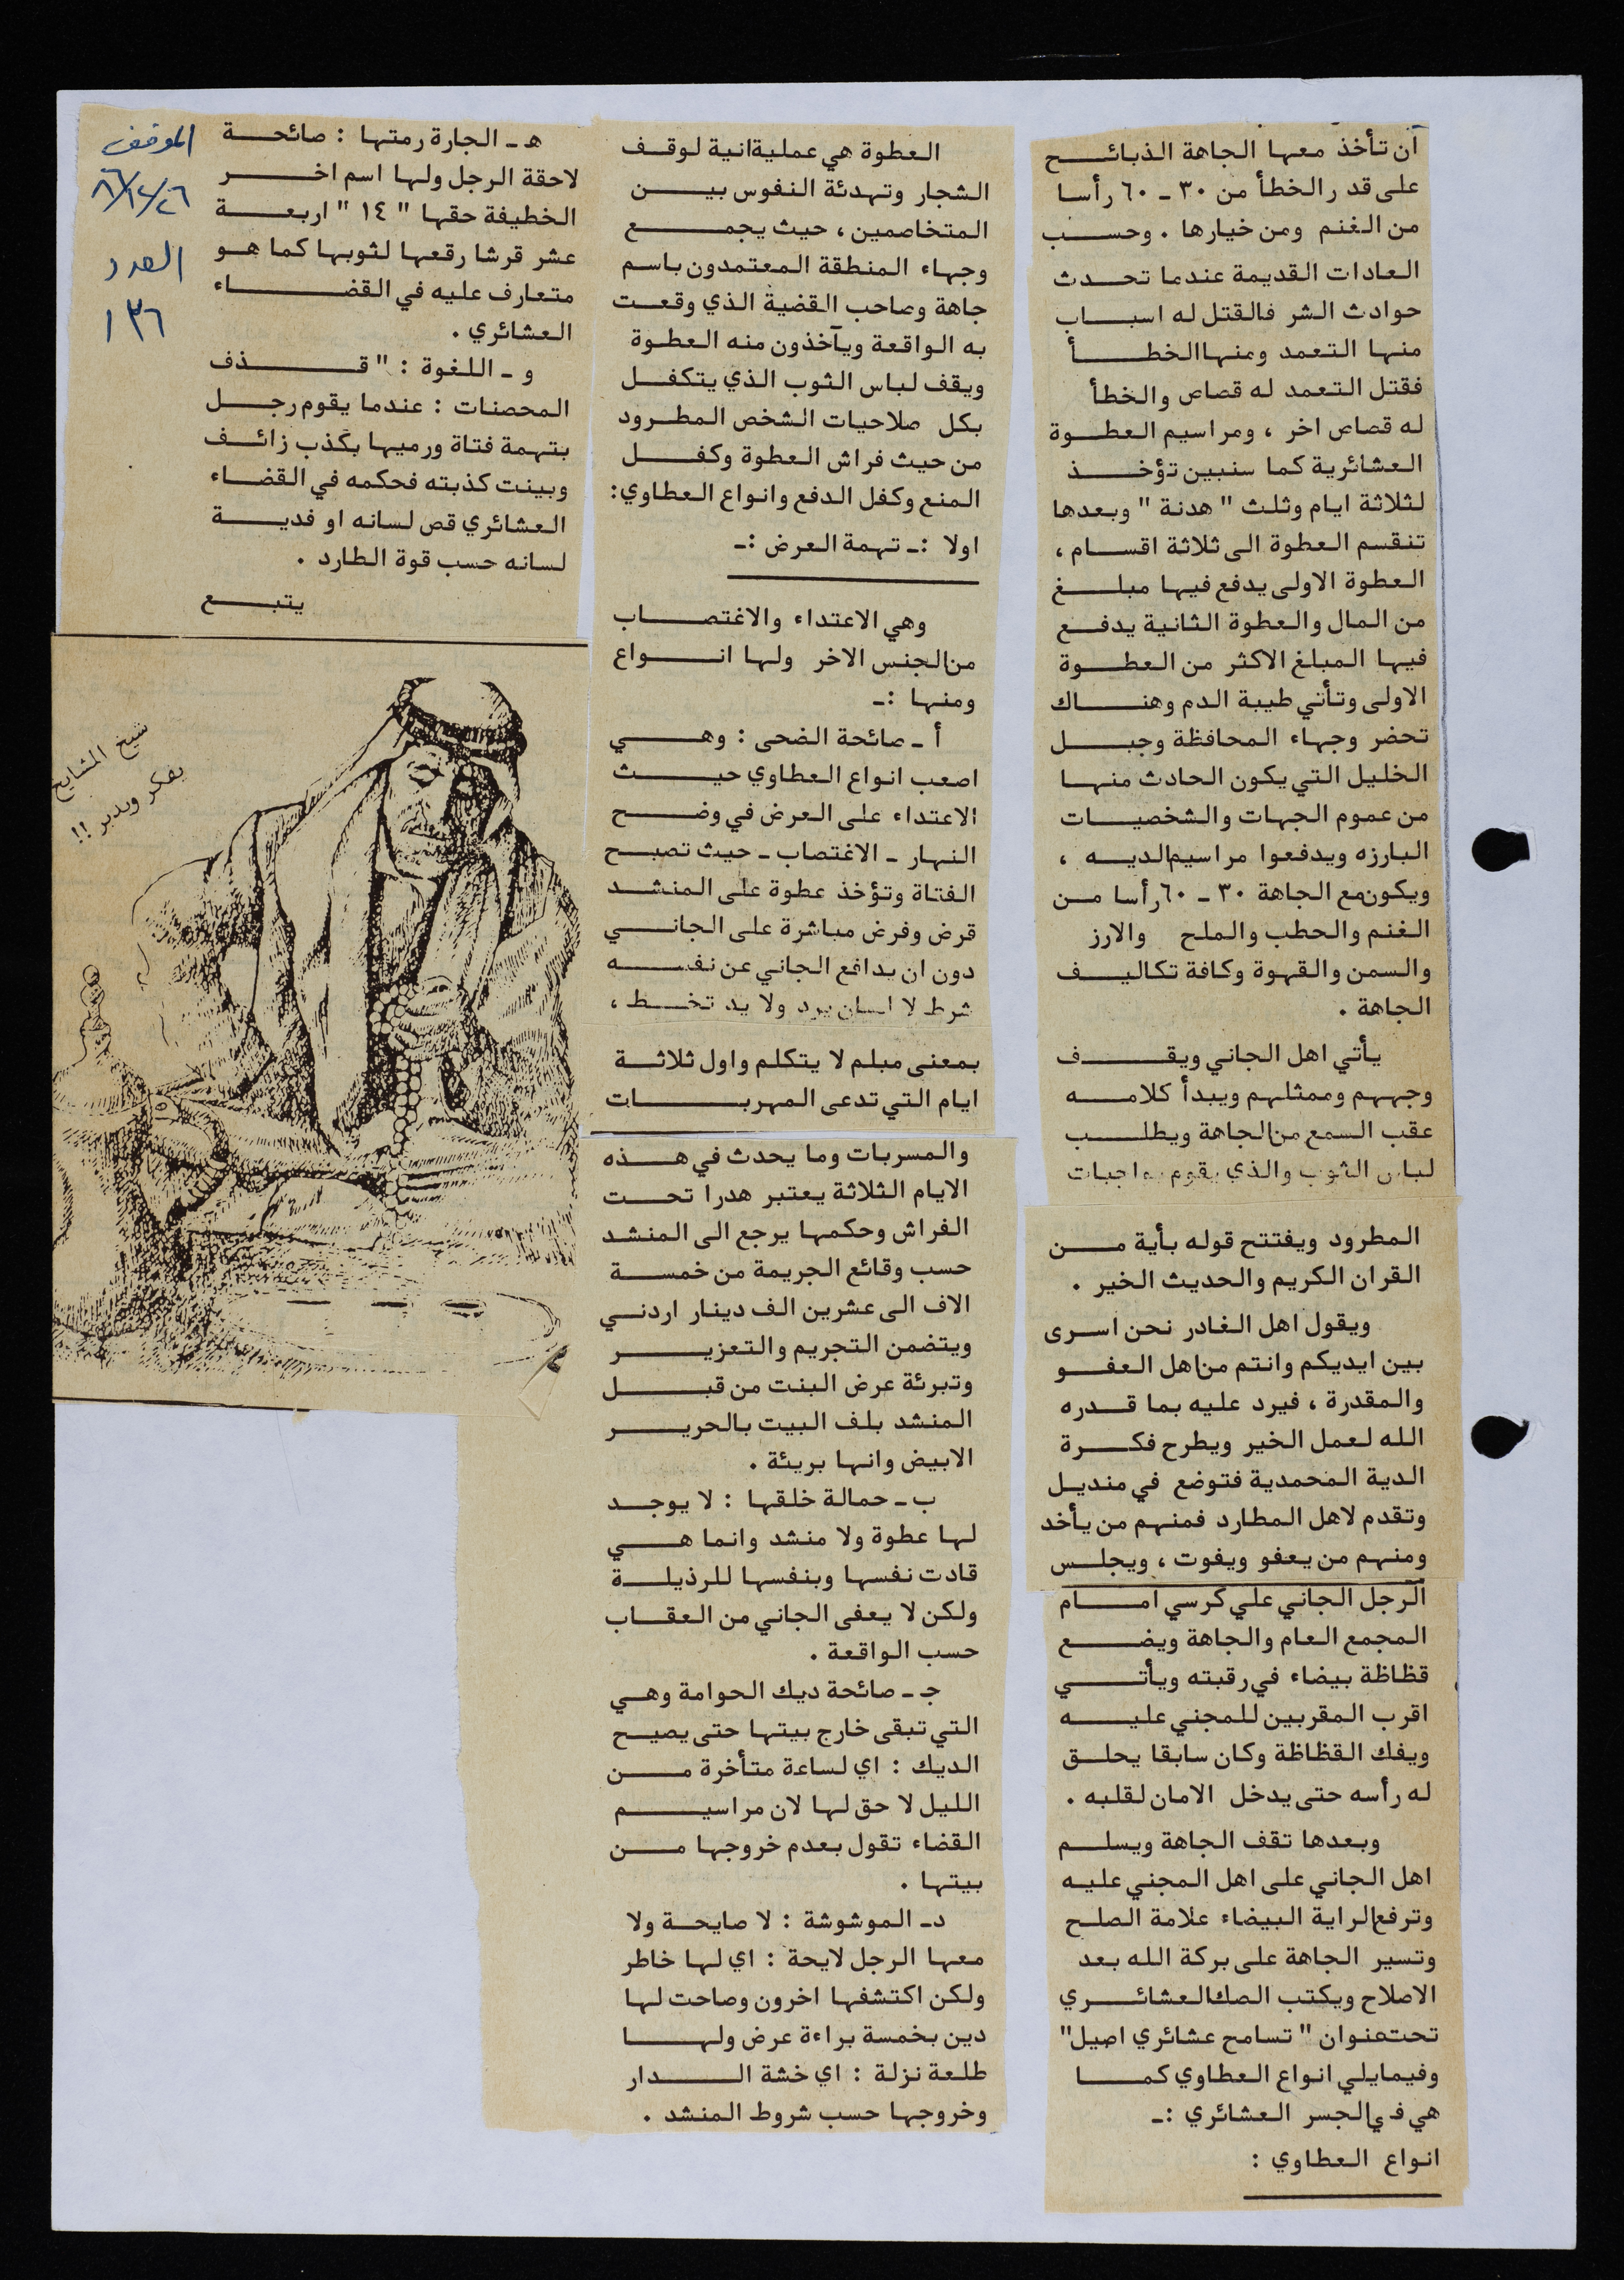 أن تأخذ معها الجاهة الذبائح
على قدر الخطأ من ٣٠ ـ ٦٠ رأسا
من الغنم ومن خيارها . وحسب
العادات القديمة عندما تحدث
حوادث الشر فالقتل له اسباب
منها التعمد ومنها الخطأ
فقتل التعمد له قصاص والخطأ
له قصاص اخر ، ومراسيم العطوة
العشائرية كما سنبين تؤخذ
لثلاثة ايام وثلث " هدنة " وبعدها
تنقسم العطوة الى ثلاثة اقسام ،
العطوة الاولى يدفع فيها مبلغ
من المال والعطوة الثانية يدفع
فيها المبلغ الاكثر من العطوة
الاولى وتأتي طيبة الدم وهناك
تحضر وجهاء المحافظة وجبل
الخليل التي يكون الحادث منها
من عموم الجهات والشخصيات
البارزه ويدفعوا مراسيم الديه ،
ويكون مع الجاهة ٣٠ ـ ٦٠ رأسا من
الغنم والحطب والملح والارز
والسمن والقهوة وكافة تكاليف
الجاهة .
يأتي اهل الجاني ويقف
وجههم وممثلهم ويبدأ كلامه
عقب السمع من الجاهة ويطلب
لباس الثوب والذي يقوم بواجبات
المطرود ويفتتح قوله بأية من
القران الكريم والحديث الخير .
ويقول اهل الغادر نحن اسرى
بين ايديكم وانتم من اهل العفو
والمقدرة ، فيرد عليه بما قدره
الله لعمل الخير ويطرح فكرة
الدية المحمدية فتوضع في منديل
وتقدم لاهل المطارد فمنهم من يأخد
ومنهم من يعفو ويفوت ، ويجلس
الرجل الجاني علي كرسي امام
المجمع العام والجاهة ويضع
قظاظة بيضاء في رقبته ويأتي
اقرب المقربين للمجني عليه
ويفك القظاظة وكان سابقا يحلق
له رأسه حتى يدخل الامان لقلبه .
وبعدها تقف الجاهة ويسلم
اهل الجاني على اهل المجني عليه
وترفع الراية البيضاء علامة الصلح
وتسير الجاهة على بركة الله بعد
الاصلاح ويكتب الصك العشائري
تحت عنوان " تسامح عشائري اصيل"
وفيمايلي انواع العطاوي كما
هي في الجسر العشائري :ـ
انواع العطاوي :
العطوة هي عملية انية لوقف
الشجار وتهدئة النفوس بين
المتخاصمين ، حيث يجمع
وجهاء المنطقة المعتمدون باسم
جاهة وصاحب القضية الذي وقعت
به الواقعة ويآخذون منه العطوة
ويقف لباس الثوب الذي يتكفل
بكل صلاحيات الشخص المطرود
من حيث فراش العطوة وكفل
المنع وكفل الدفع وانواع العطاوي:
اولا :ـ تهمة العرض :ـ
وهي الاعتداء والاغتصاب
من الجنس الاخر ولها انواع
ومنها :ـ
أ ـ صائحة الضحى : وهي
اصعب انواع العطاوي حيث
الاعتداء على العرض في وضح
النهار ـ الاغتصاب ـ حيث تصبح
الفتاة وتؤخذ عطوة على المنشد
قرض وفرض مباشرة على الجاني
دون ان يدافع الجاني عن نفسه
شرط لا لسان يرد ولا يد تخط ،
بمعنى مبلم لا يتكلم واول ثلاثة
ايام التي تدعى المهربات
والمسربات وما يحدث في هذه
الايام الثلاثة يعتبر هدرا تحت
الفراش وحكمها يرجع الى المنشد
حسب وقائع الجريمة من خمسة
الاف الى عشرين الف دينار اردني
ويتضمن التجريم والتعزير
وتبرئة عرض البنت من قبل
المنشد بلف البيت بالحرير
الابيض وانها بريئة .
ب ـ حمالة خلقها : لا يوجد
لها عطوة ولا منشد وانما هي
قادت نفسها وبنفسها للرذيلة
ولكن لا يعفى الجاني من العقاب
حسب الواقعة .
جـ ـ صائحة ديك الحوامة وهي
التي تبقى خارج بيتها حتى يصيح
الديك : اي لساعة متأخرة من
الليل لا حق لها لان مراسيم
القضاء تقول بعدم خروجها من
بيتها .
د ـ الموشوشة : لا صايحة ولا
معها الرجل لايحة : اي لها خاطر
ولكن اكتشفها اخرون وصاحت لها
دين بخمسة براءة عرض ولها
طلعة نزلة : اي خشة الدار
وخروجها حسب شروط المنشد .
هـ ـ الجارة رمتها : صائحة
لاحقة الرجل ولها اسم اخر
الخطيفة حقها " ١٤ " اربعة
عشر قرشا رقعها لثوبها كما هو
متعارف عليه في القضاء
العشائري .
و ـ اللغوة : " قذف
المحصنات : عندما يقوم رجل
بتهمة فتاة ورميها بكذب زائف
وبينت كذبته فحكمه في القضاء
العشائري قص لسانه او فدية
لسانه حسب قوة الطارد .
يتبع
الموقف
٨٦/١٢/٢٦
العدد
١٣٦
شيخ المشايخ
يفكر ويدبر !!